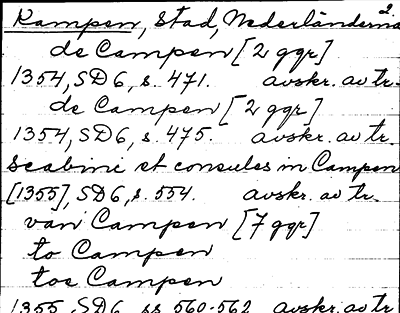 2.
Kampen, stad, Nederländerna
de Campen [2 ggr]
1354, SD6, s. 471. avskr. av tr.
de Campen [2 ggr]
1354, SD6, s. 475. avskr. av tr.
Scabini et consules in Campen
[1355], SD6, s. 554. avskr. av tr.
van Campen [7 ggr]
to Campen
toe Campen
1355, SD6, ss 560-562 avskr. av tr.